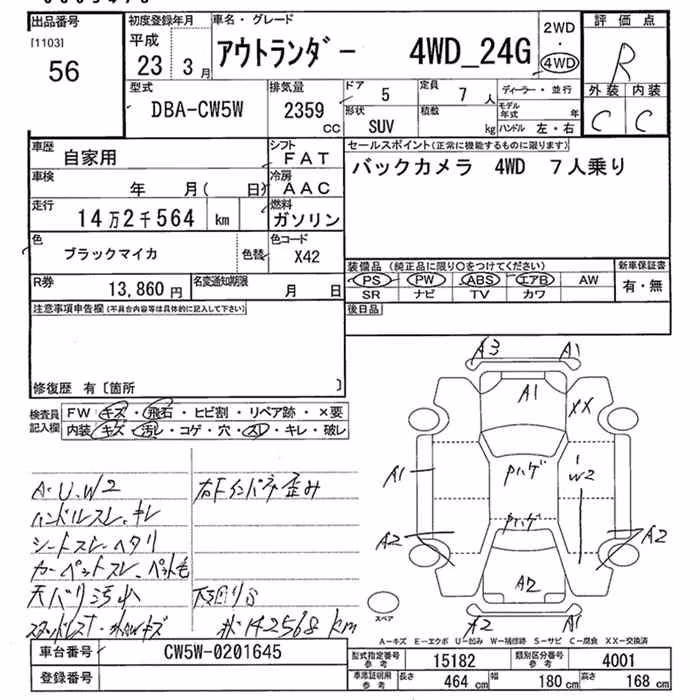 出品番号
[1103]
56
初度登録年月
平成
23 3月
車名・グレード
アウトランダー 4WD_24G
2WD
・
4WD
評価点
R
外装 内装
C C
型式
DBA-CW5W
排気量
2359
CC
ドア 5
形状 SUV
定員 7 人
積載 kg
ディーラー・並行
モデル年式 年
ハンドル 左・右
車歴 自家用
シフト FAT
車検 年 月( 日)
冷房 AAC
走行 14万2千564 km
燃料 ガソリン
色 ブラックマイカ 色替
色コード X42
R券 13,860円
名変通知期限 月 日
セールスポイント(正常に機能するものに限ります)
バックカメラ 4WD 7人乗り
装備品 (純正品に限り○をつけてください)
PS PW ABS エアB AW
SR ナビ TV カワ
新車保証書
有・無
後日品
注意事項申告欄(不具合内容等は具体的に記入して下さい)
修復歴 有〔箇所 〕
検査員記入欄
FW キズ・飛石・ヒビ割・リペア跡・×要
内装 キズ・汚レ・コゲ・穴・スレ・キレ・破レ
A・U、W2
ハンドルスレ、キレ
シートスレ、ヘタリ
カーペットスレ、ペット毛
天バリ汚れ
右Fインパネ歪み
下回りS
※142568km
A3 A1
A1
XX
A1
Pハゲ
W2
Pハゲ
A2
A2
A2
A2 A1
スペア
A-キズ E-エクボ U-凹み W-補修跡 S-サビ C-腐食 XX-交換済
車台番号 CW5W-0201645
登録番号
型式指定番号 参考 15182
類別区分番号 参考 4001
車庫証明用 参考 長さ 464 cm 幅 180 cm 高さ 168 cm